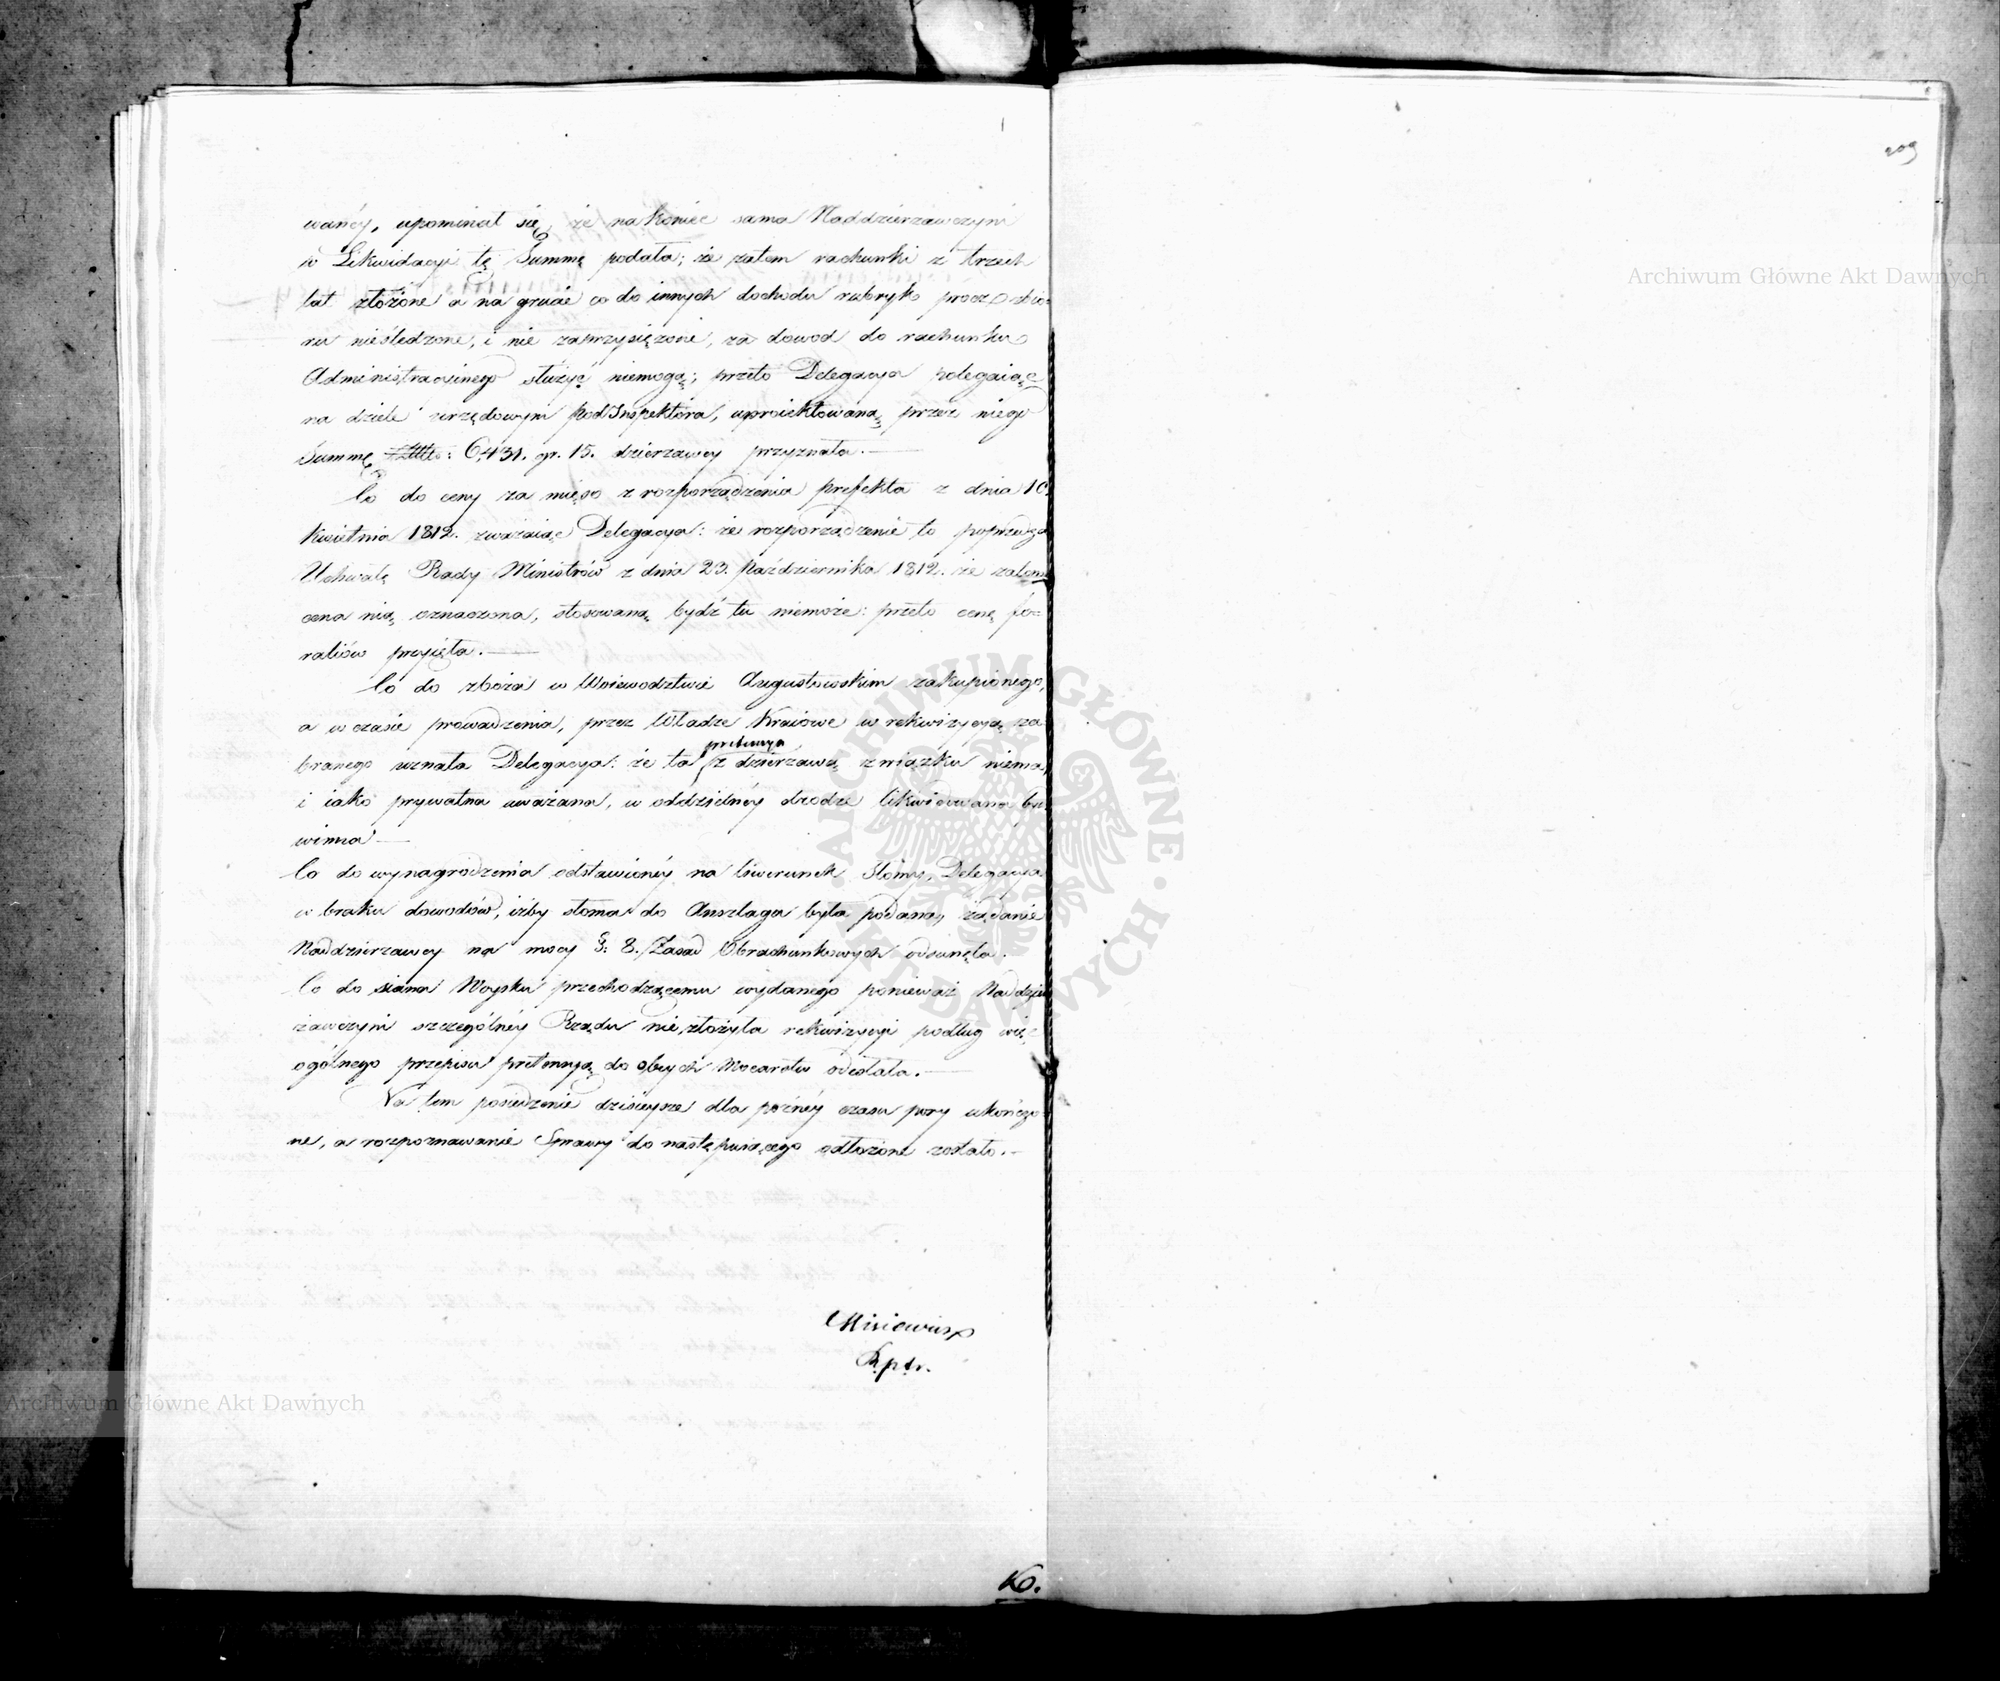 209
wanéy, upominał się, że nakoniec sama Naddzierzawczyni
w Likwidacyi tę Summę podała; że zatem rachunki z trzech
lat złożone a na grucie co do innych dochodu rubryk procz zbio-
ru nieśledzone, i nie zaprzysiężone, za dowod do rachunku
Administracyinego służyć niemogą; przeto Delegacya polegaiąc
na dziele urzędowym podInspektora, uproiektowaną przez niego
Summę 6,431. gr. 15. dzierzawcy przyznała.
Co do ceny za mięso z rozporządzenia prefekta z dnia 10.
Kwietnia 1812. zważaiąc Delegacya: że rozporządzenie to poprzedza
Uchwałę Rady Ministrów z dnia 23. Października 1812. że zatem
cena nią oznaczona, stosowaną bydź tu niemoże: przeto cenę
przyięta.
Co do zboża w Woiewodztwie Augustowskim zakupionego,
a w czasie prowadzenia, przez Władze Kraiowe w rekwizycyą za-
branego uznała Delegacya: że ta pretensya z dzierzawą związku niema,
i iako prywatna uważana, w oddzielnéy drodze likwidowana być
winna
Co do wynagrodzenia odstawionéy na liwerunek Słomy, Delegacya
w braku dowodów, iżby słoma do Anszlagu była podana, żądanie
Naddzierzawcy na mocy §: 8. Zasad Obrachunkowych odsunęła.
Co do siana Woysku przechodzącemu wydanego ponieważ Naddzier
żawczyni szczególnéy Rządu nie złożyła rekwizycyi podług
ogólnego przepisu pretensyą do obcych Mocarstw odesłała.
Na tem posiedzenie dzisieysze dla poźnéy czasu pory ukończo-
ne, a rozpoznawanie Sprawy do następuiącego odłożone zostało.
Misiewicz
Kᵒ.
Archiwum Główne Akt Dawnych
Archiwum Główne Akt Dawnych
ARCHIWUM GŁÓWNE AKT DAWNYCH